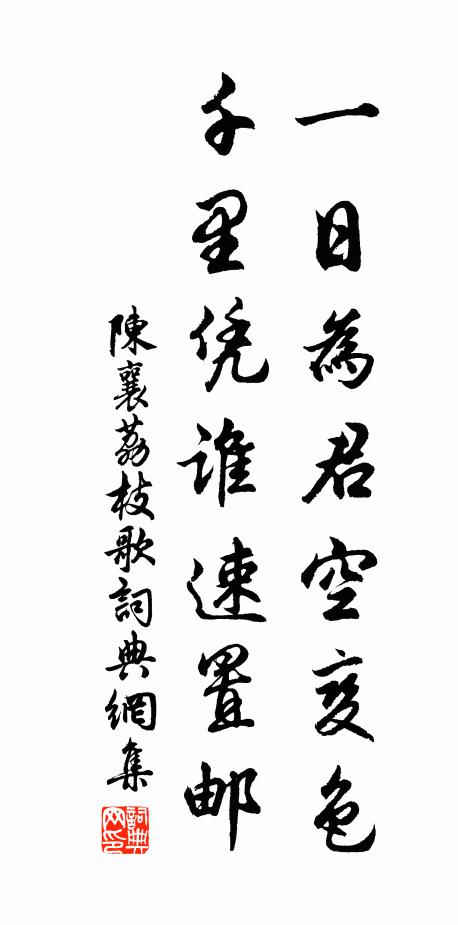 一日為君空变色
千里凭谁速置邮
陳襄荔枝歌詞典網集
詞典网印